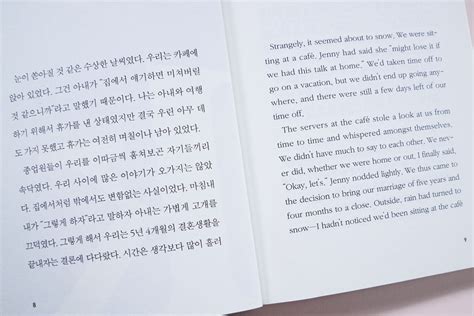 눈이 쏟아질 것 같은 수상한 날씨였다. 우리는 카페에
앉아 있었다. 그건 아내가 "집에서 얘기하면 미쳐버릴
것 같으니까"라고 말했기 때문이다. 나는 아내와 여행
하기 위해서 휴가를 낸 상태였지만 결국 우린 아무 데
도 가지 못했고 휴가는 여전히 며칠이나 남아 있었다.
종업원들이 우리를 이따금씩 훔쳐보곤 자기들끼리
속닥였다. 우리 사이에 많은 이야기가 오가지는 않았
다. 집에서처럼 밖에서도 변함없는 사실이었다. 마침내
내가 "그렇게 하자"라고 말하자 아내는 가볍게 고개를
끄덕였다. 그렇게 해서 우리는 5년 4개월의 결혼생활을
끝내자는 결론에 다다랐다. 시간은 생각보다 많이 흘러
8
Strangely, it seemed about to snow. We were sit-
ting at a café. Jenny had said she "might lose it if
we had this talk at home." We'd taken time off to
go on a vacation, but we didn't end up going any-
where, and there were still a few days left of our
time off.
The servers at the café stole a look at us from
time to time and whispered amongst themselves.
We didn't have much to say to each other. We nev-
er did, whether we were home or out. I finally said,
"Okay, let's." Jenny nodded lightly. We thus came to
the decision to bring our marriage of five years and
four months to a close. Outside, rain had turned to
snow—I hadn't noticed we'd been sitting at the café
9